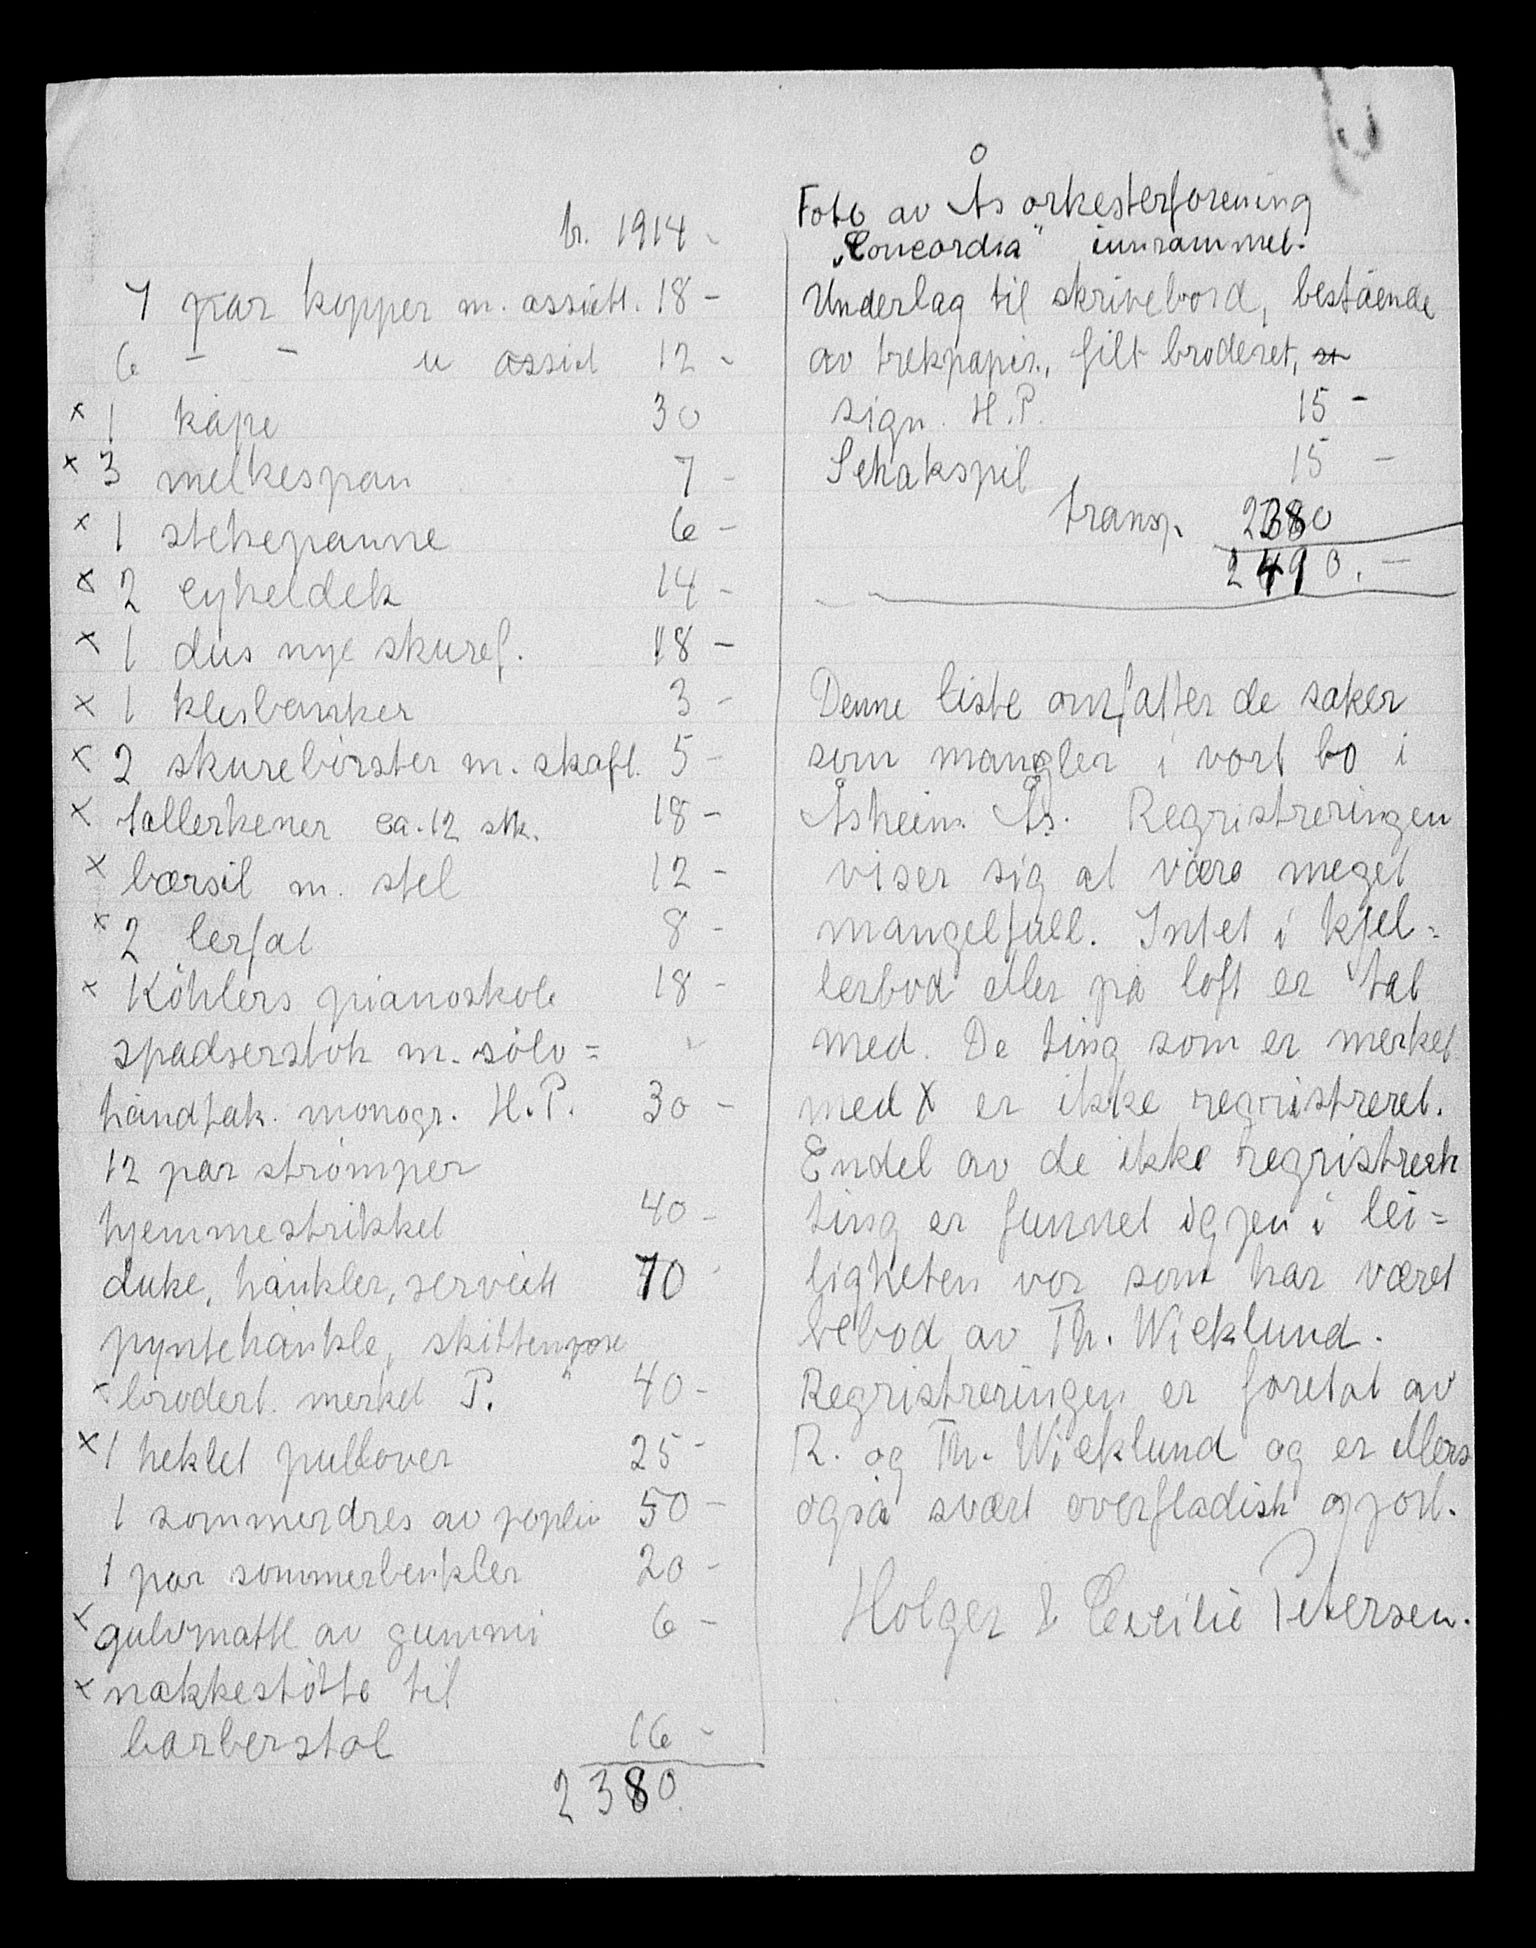 tr. 1914 -
7 par kopper m. assiett. 18 -
6 - - u assiet 12 -
x 1 kåpe 30
x 3 melkespan 7 -
x 1 stekepanne 6 -
x 2 cykeldek 14 -
x 1 dus nye skuref. 18 -
x 1 klesbanker 3 -
x 2 skurebörster m. skaft. 5 -
x tallerkener ca. 12 stk. 18 -
x bærsil m. stel 12 -
x 2 lerfat 8 -
x Köhlers pianoskole 18 -
spadserstok m. sölv =
håndtak. monogr. H.P. 30 -
12 par strömper
hjemmestrikket 40 -
duke, håndklær, serviett 70
pyntehåndkle, skittenpose
x brodert. merket P. 40 -
x 1 heklet pullover 25 -
1 sommerdres av poplin 50 -
1 par sommerbenklær 20 -
x gulvmatte av gummi 6 -
x nakkestötte til
barberstol 16 -
2380.
Foto av Ås orkesterforening
"Concordia" innrammet.
Underlag til skrivebord, bestående
av trekpapir, filt broderet, st
sign. H.P. 15 -
Schakspil 15 -
transp. 2380
2410. -
Denne liste omfatter de saker
som mangler i vort bo i
Åsheim. Ås. Regristreringen
viser sig at være meget
mangelfull. Intet i kjel =
lerbod eller på loft er tat
med. De ting som er merket
med x er ikke regristreret.
Endel av de ikke regristrerte
ting er funnet igjen i lei =
ligheten vor som har været
bebod av Th. Wicklund.
Regristreringen er foretat av
R. og Th. Wicklund og er ellers
også svært overfladisk gjort.
Holger & Cecilie Petersen.